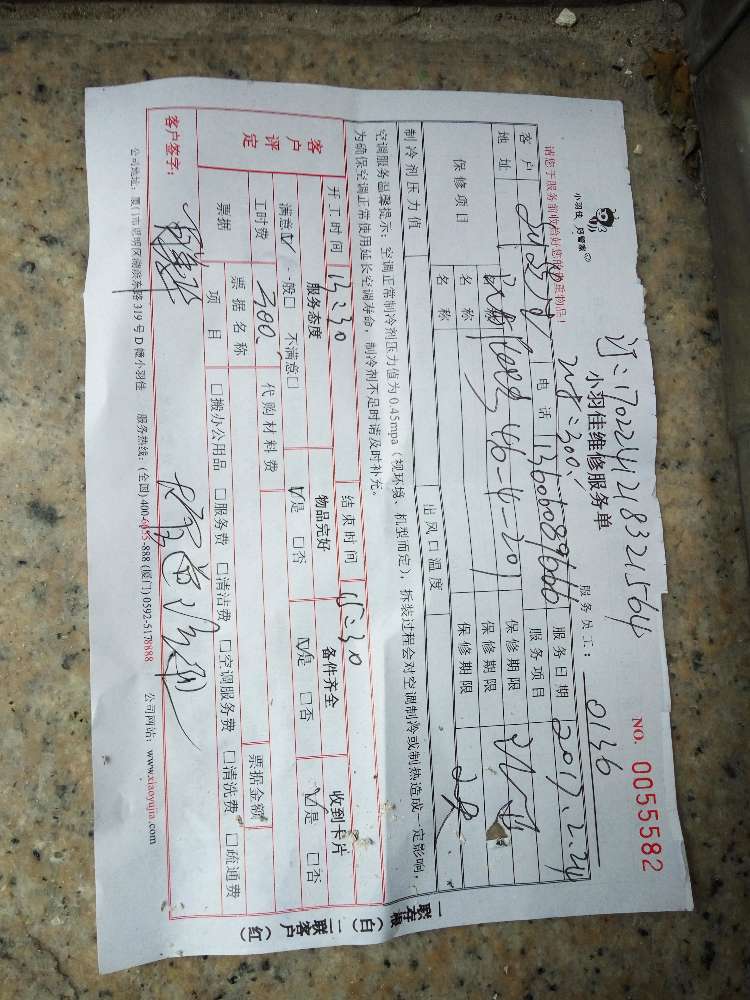 订:1702241218321564
小羽佳 好管家
小羽佳维修服务单
NO. 0055582
服务员工: 0136
请您于服务前收拾好您的贵重物品!
客户 电话 13606089666 服务日期 2017.2.24
地址 46-4-201 服务项目
保修项目 名称 保修期限
名称 保修期限
制冷剂压力值 出风口温度
空调服务温馨提示:空调正常制冷剂压力值为0.45mpa(视环境、机型而定),拆装过程会对空调制冷或制热造成一定影响,
为确保空调正常使用延长空调寿命,制冷剂不足时请及时补充。
开工时间 15:30 结束时间 15:30
客户评定 服务态度 物品完好 备件齐全 收到卡片
满意☑ 一般□ 不满意□ ☑是 □否 ☑是 □否 ☑是 □否
工时费 300 代购材料费
票据 票据名称 票据金额
项目 □搬办公用品 □服务费 □清洁费 □空调服务费 □清洗费 □疏通费
客户签字:
公司地址:厦门市思明区湖滨东路319号D幢小羽佳 服务热线:(全国)400-6055-888 (厦门)0592-5178888 公司网站:www.xiaoyujia.com
一联存根(白)二联客户(红)